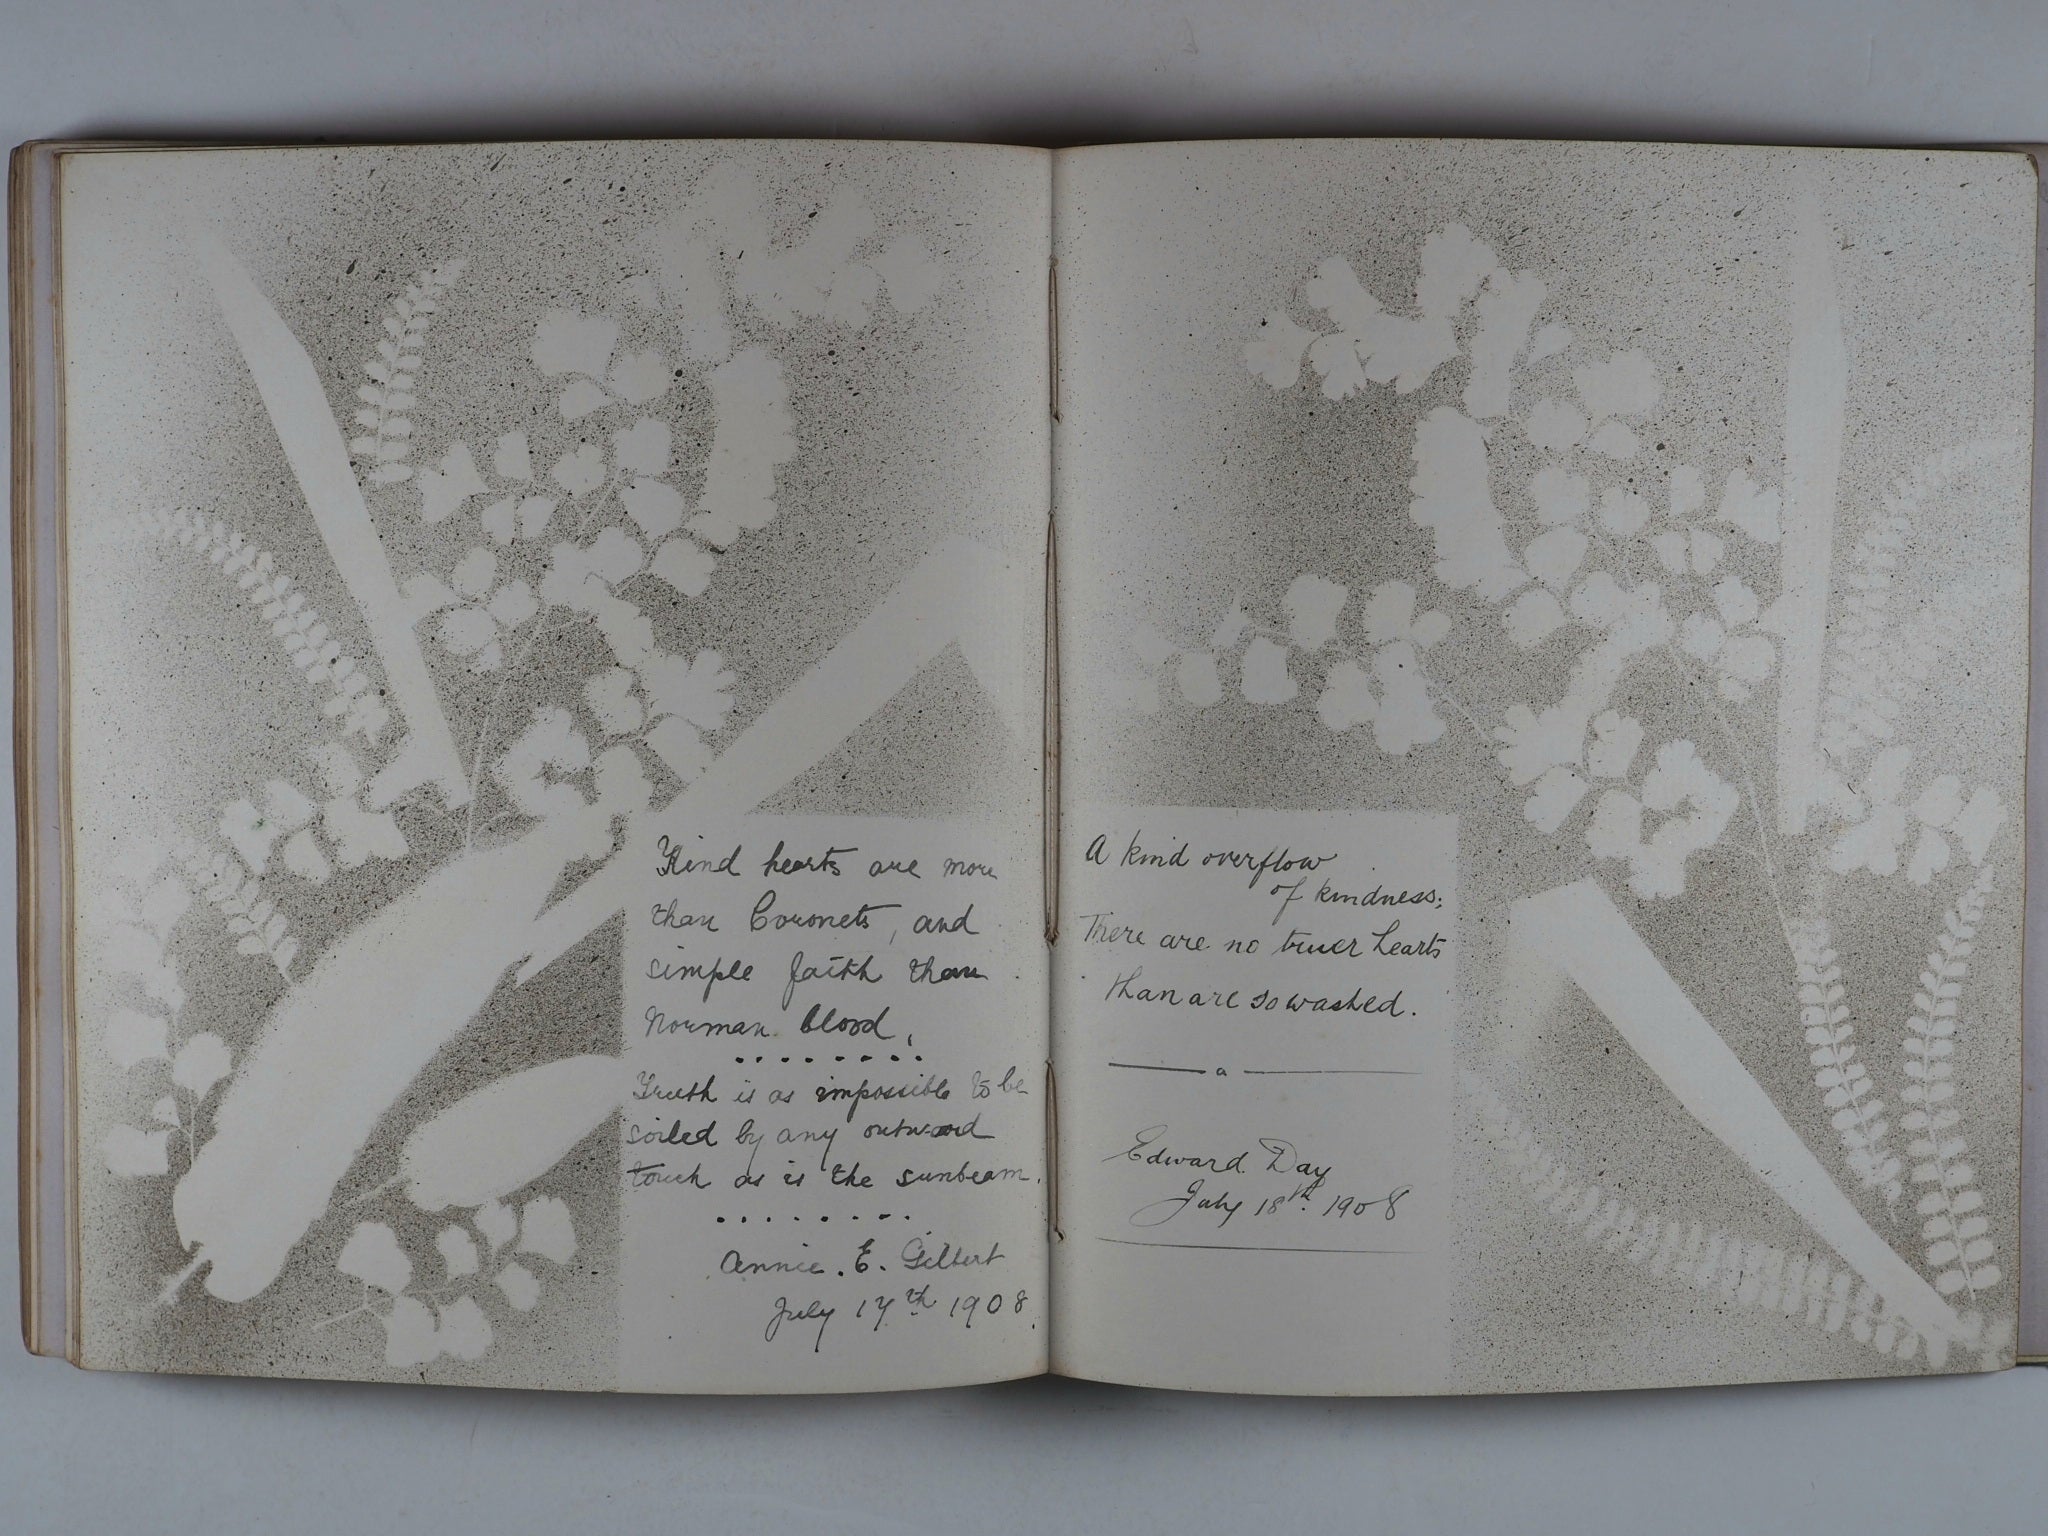 Kind hearts are more
than Coronets, and
simple faith than
Norman blood,
Truth is as impossible to be
soiled by any outward
touch as is the sunbeam.
Annie. E. Gilbert
July 17th 1908.
A kind overflow
of kindness;
There are no truer hearts
than are so washed.
Edward Day
July 18th. 1908